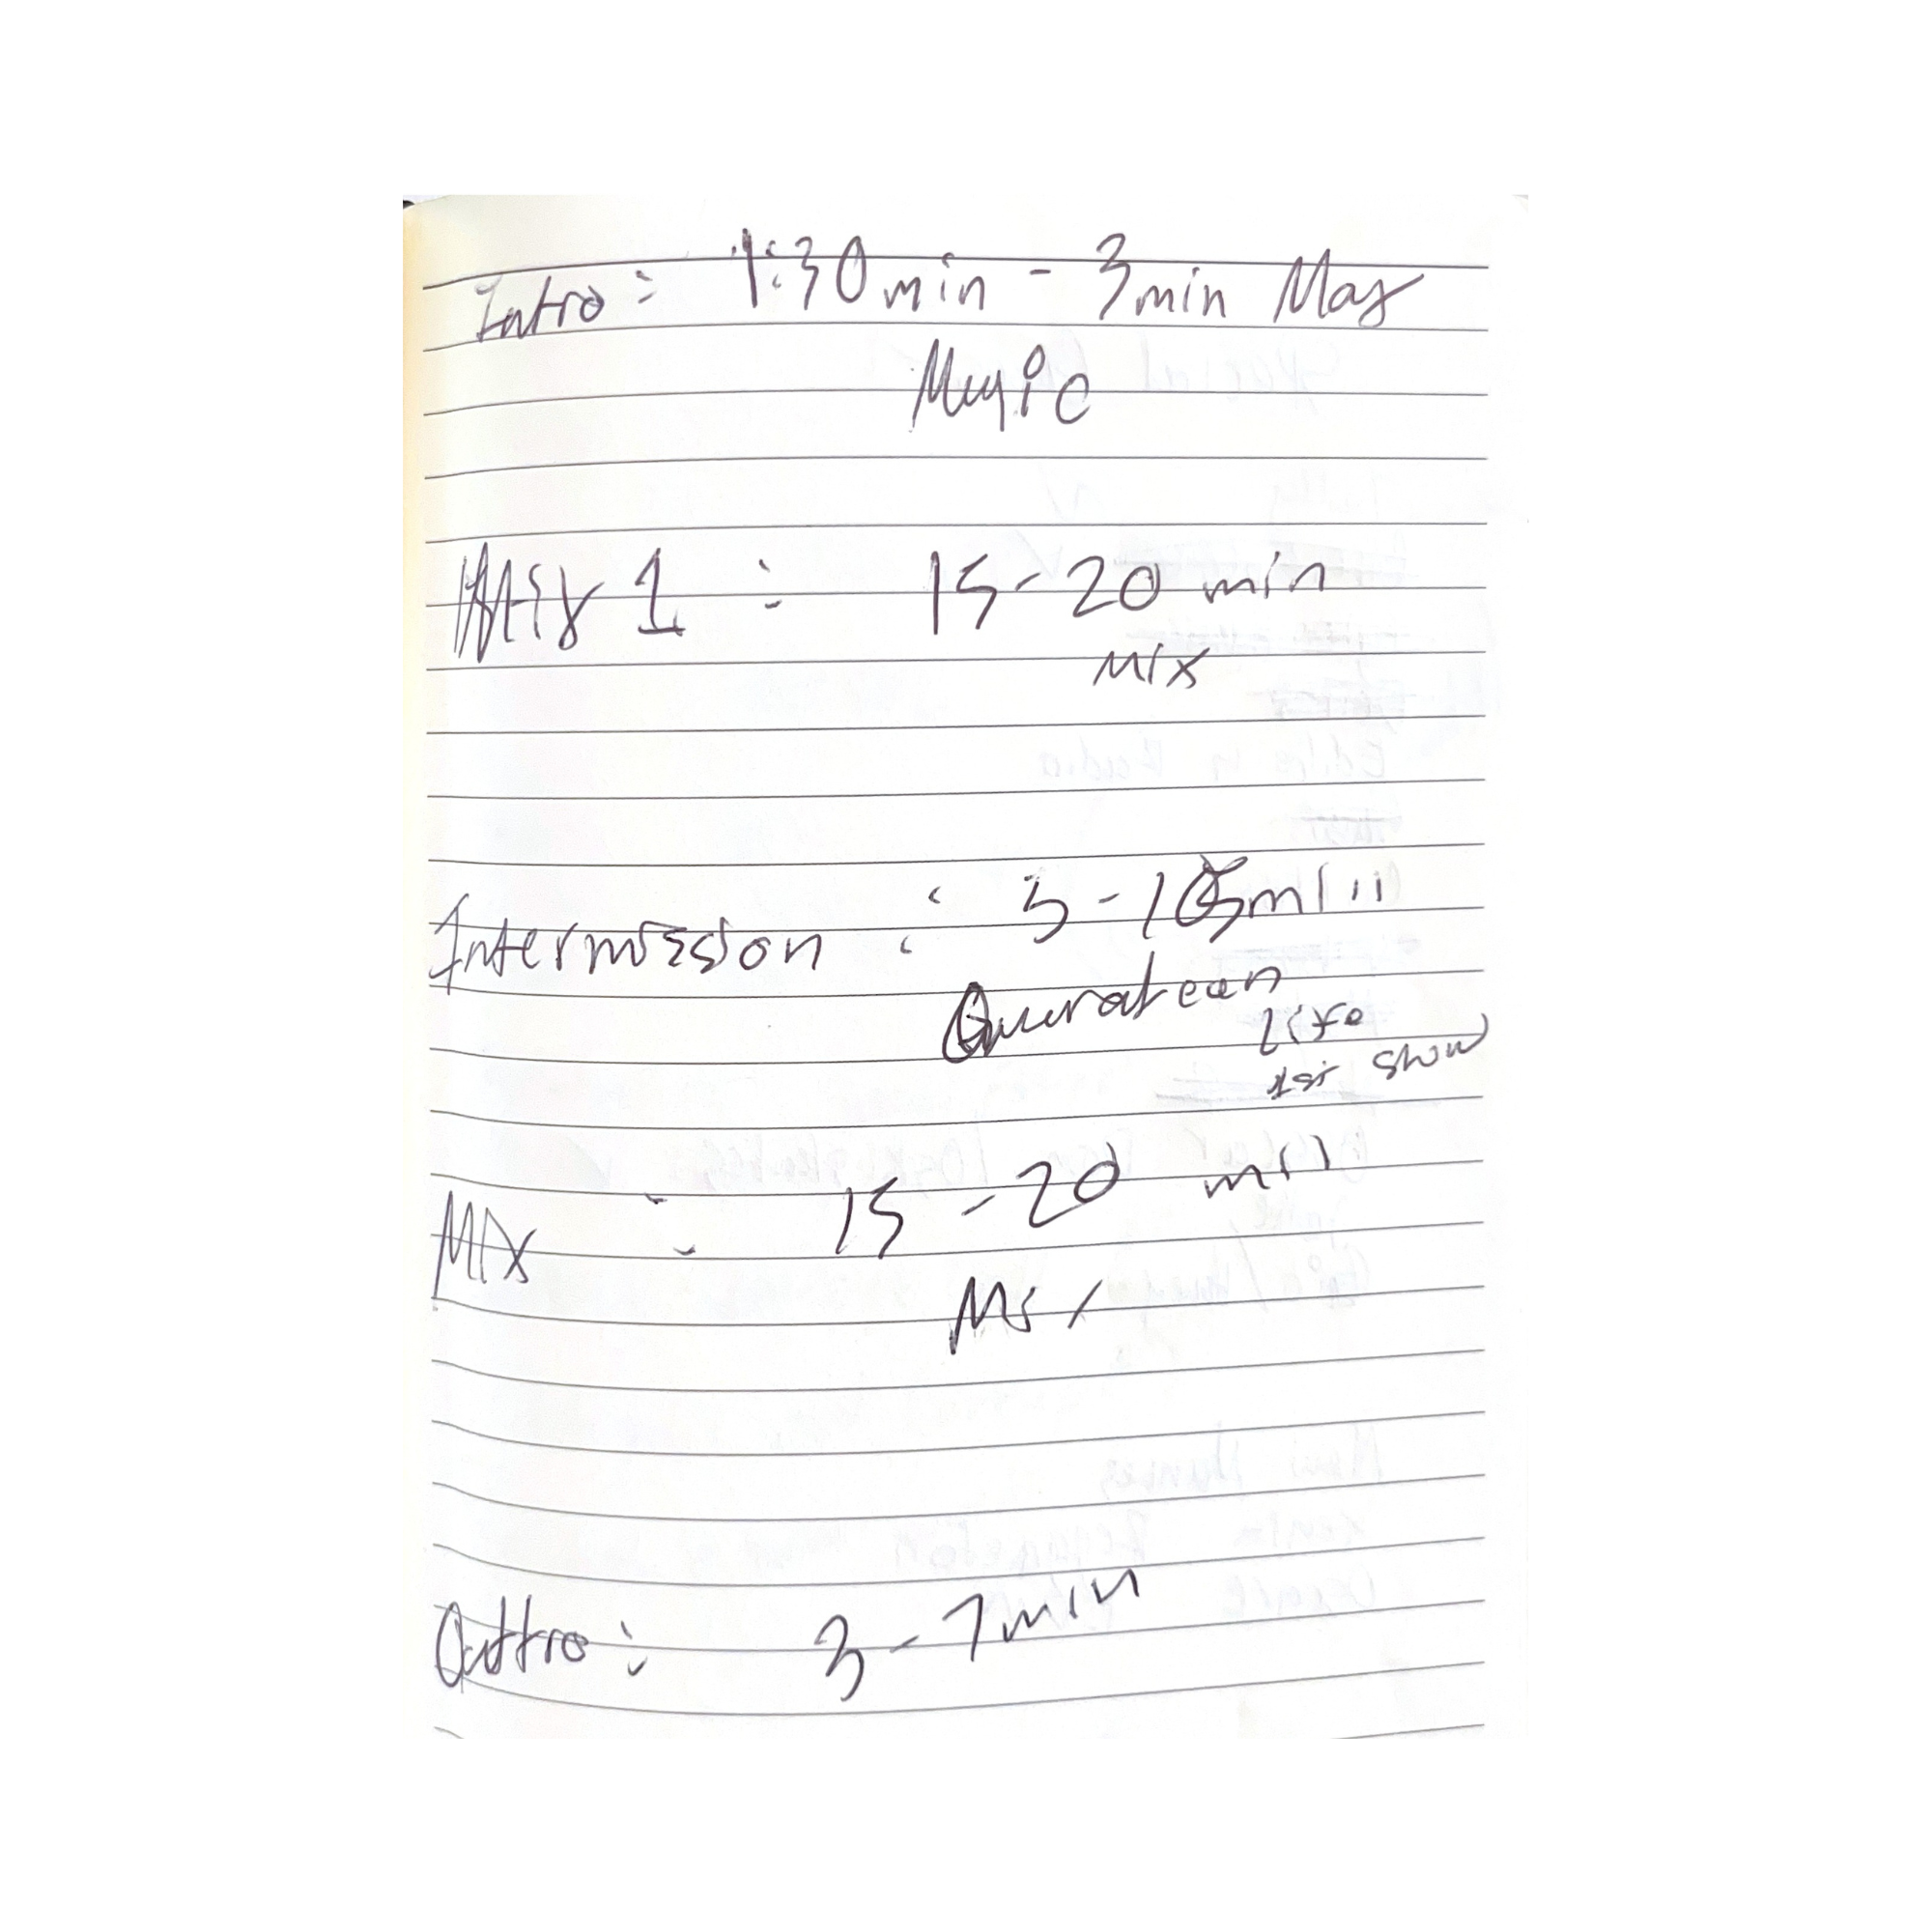 Intro: 1:30 min - 3 min Max
Music
Mix 1 : 15-20 min
Mix
Intermission : 5 - 10 min
Life
1st show
Mix : 15 - 20 min
Mix
Outtro: 3 - 7 min